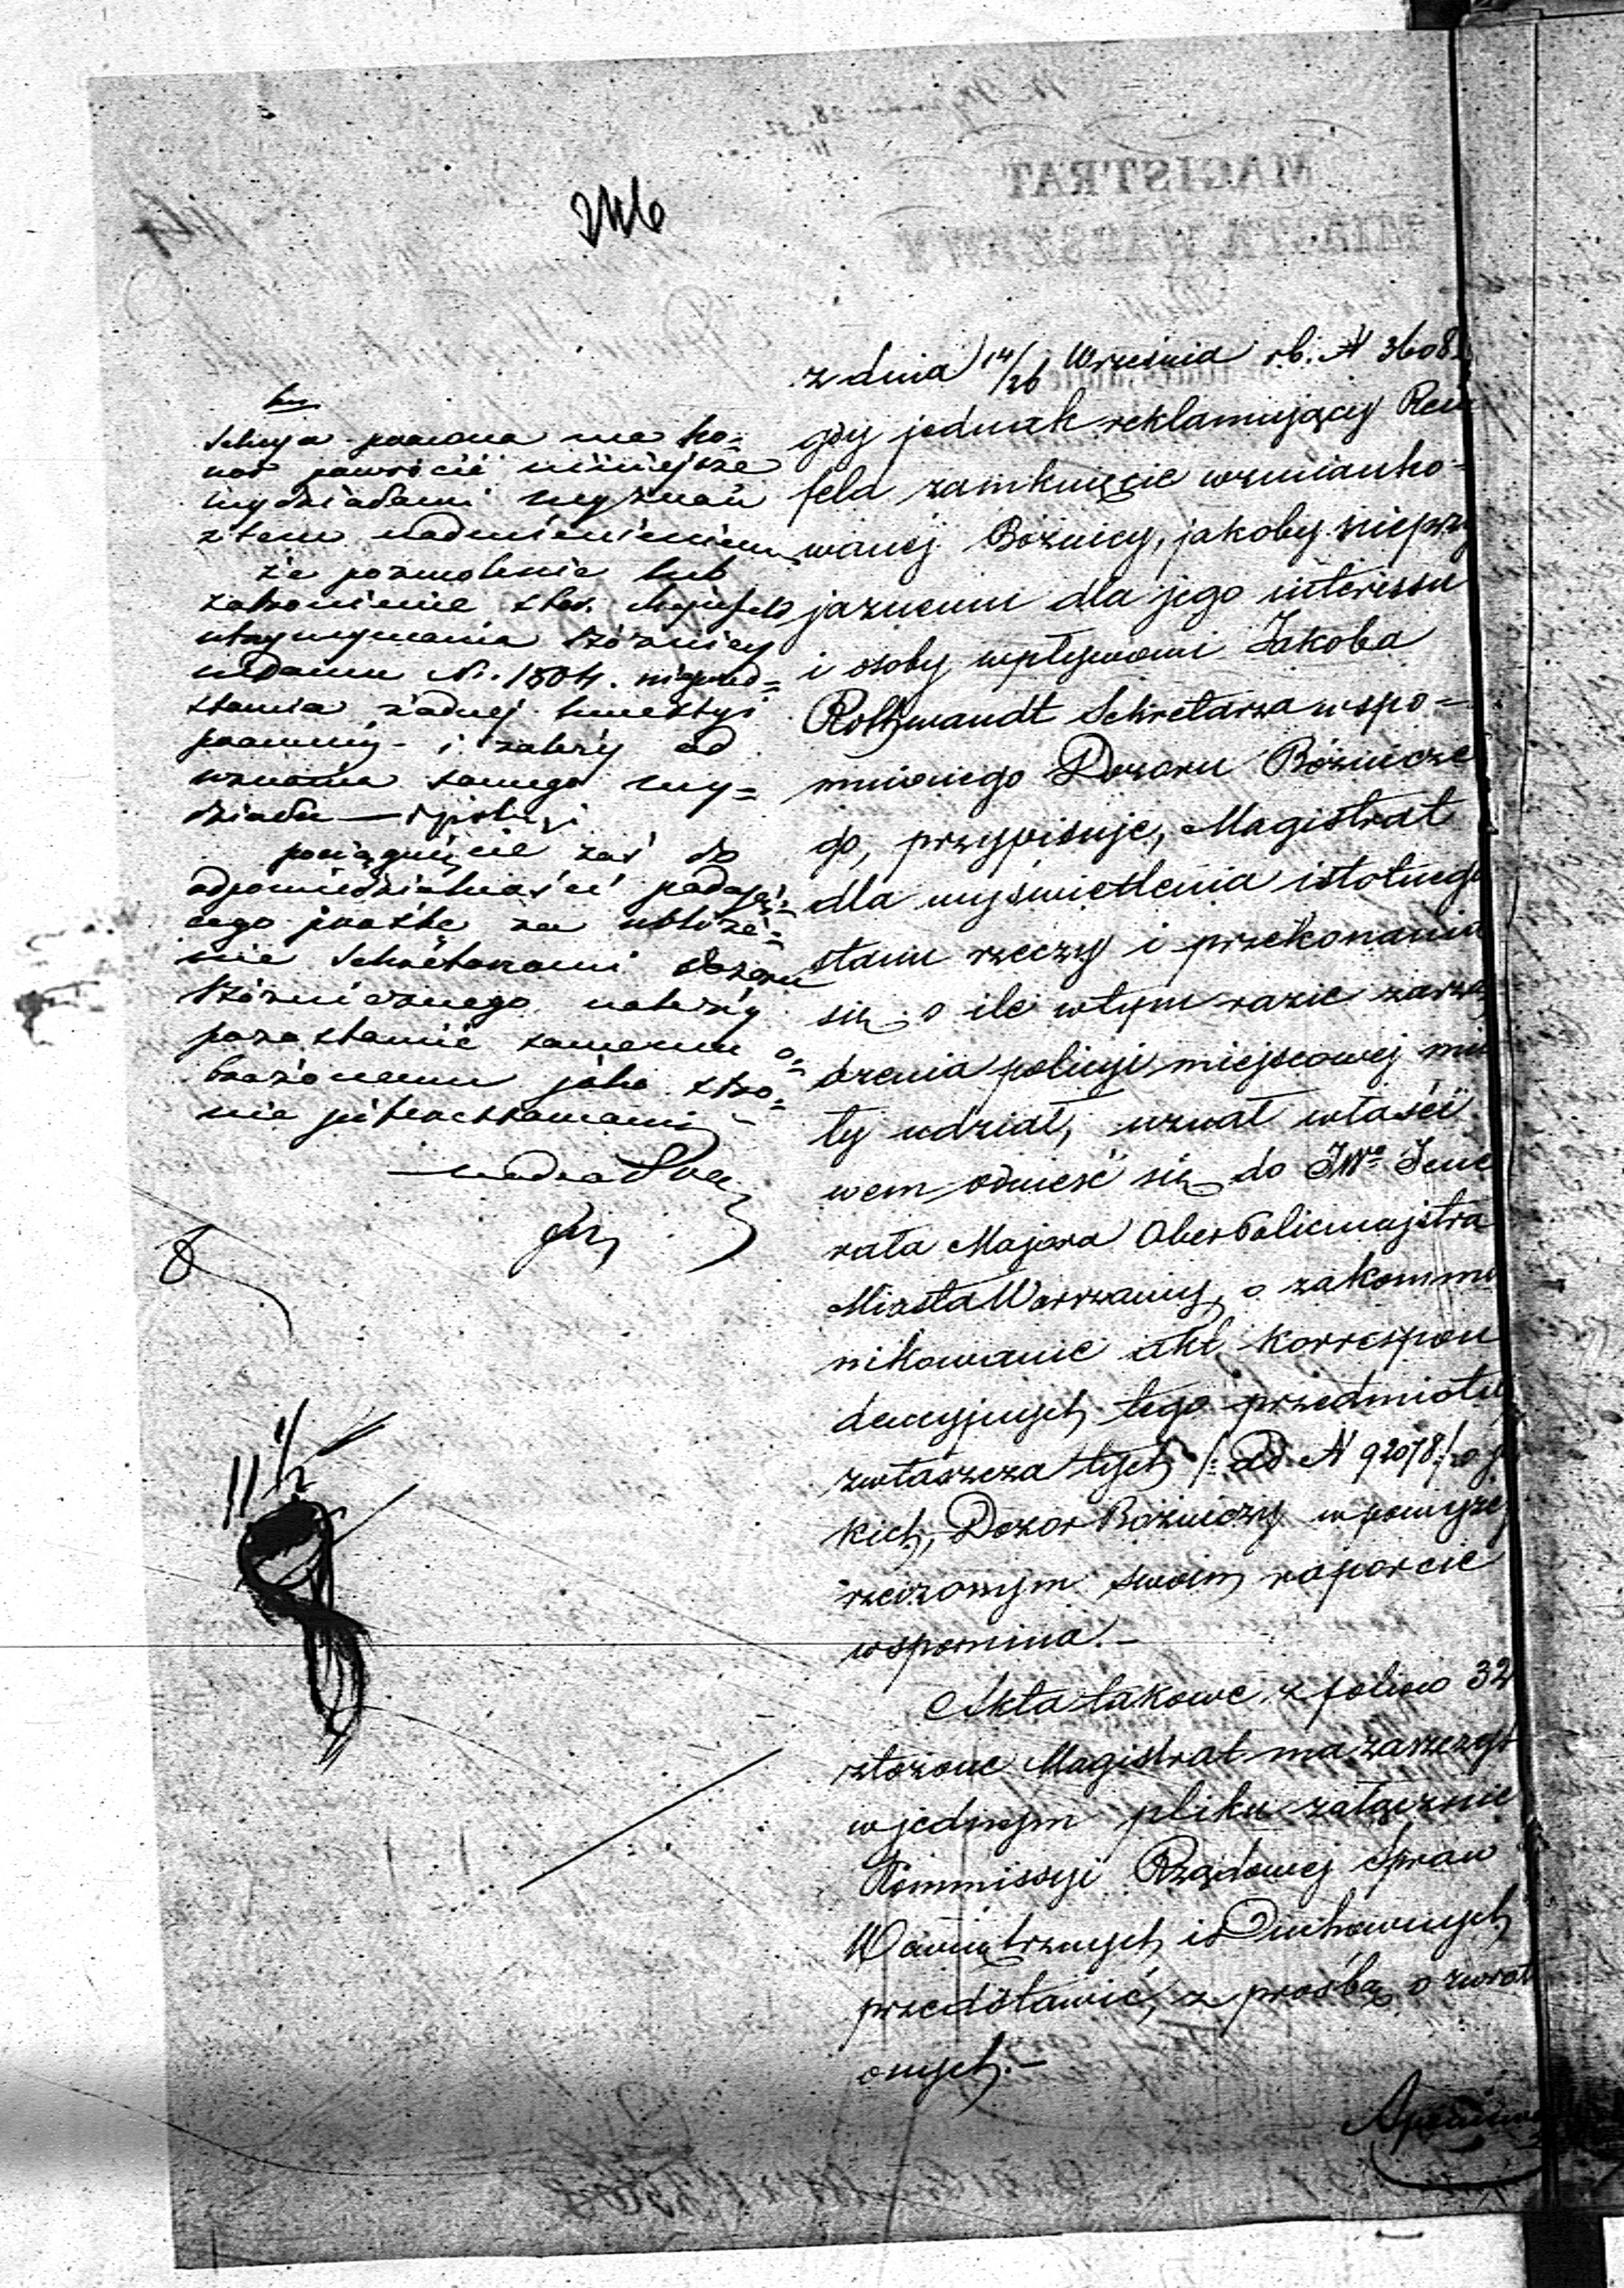 246
z dnia 14/26 Września r.b. N 3608
gdy jednak reklamujący
fela zamknięcie wzmianko=
wanej Bóżnicy, jakoby nieprzy
jaznemi dla jego interessu
i osoby wpływami Jakoba
Rothwandt Sekretarza wspo=
mnionego Dozoru Bóżnicze
go, przypisuje, Magistrat
dla wyświetlenia istotnego
stanu rzeczy i przekonania
się o ile w tym razie zarzą
dzenia policyi miejscowej mia
ły udział, uznał właści
wem odnieść się do JWo Jene
rała Majora OberPolicmajstra
Miasta Warszawy, o zakommu
nikowanie akt korrespon
dencyjnych tego przedmiotu
zwłaszcza tych /: do N 92078 :/ o ja
kich, Dozor Bóżniczy w powyżej
rzeczonym swoim raporcie
wspomina. –
Akta takowe z foliów 32
złożone Magistrat ma zaszczyt
w jednym pliku załącznie
Kommissyi Rządowej Spraw
Wewnętrznych i Duchownych
przedstawić, z prośbą o zwrot
onych. –
Sekcya prawna ma ho=
nor powrócić niniejsze
wydziałowi wyznań
z tem nadmienieniem
że pozwolenie lub
zabronienie star.
utrzymywania Bóżnicy
w domu N. 1804. nieprzed=
stawia żadnej kwestyi
prawnéj i zależy od
uznania samego wy=
działu –
pociągnięcie zaś do
odpowiedzialności podają=
cego prośbę za ubliże=
nie Sekretarzowi dozoru
Bóżniczego należy
pozostawić samemu o=
brażonemu jako stro=
nie
11 1/2